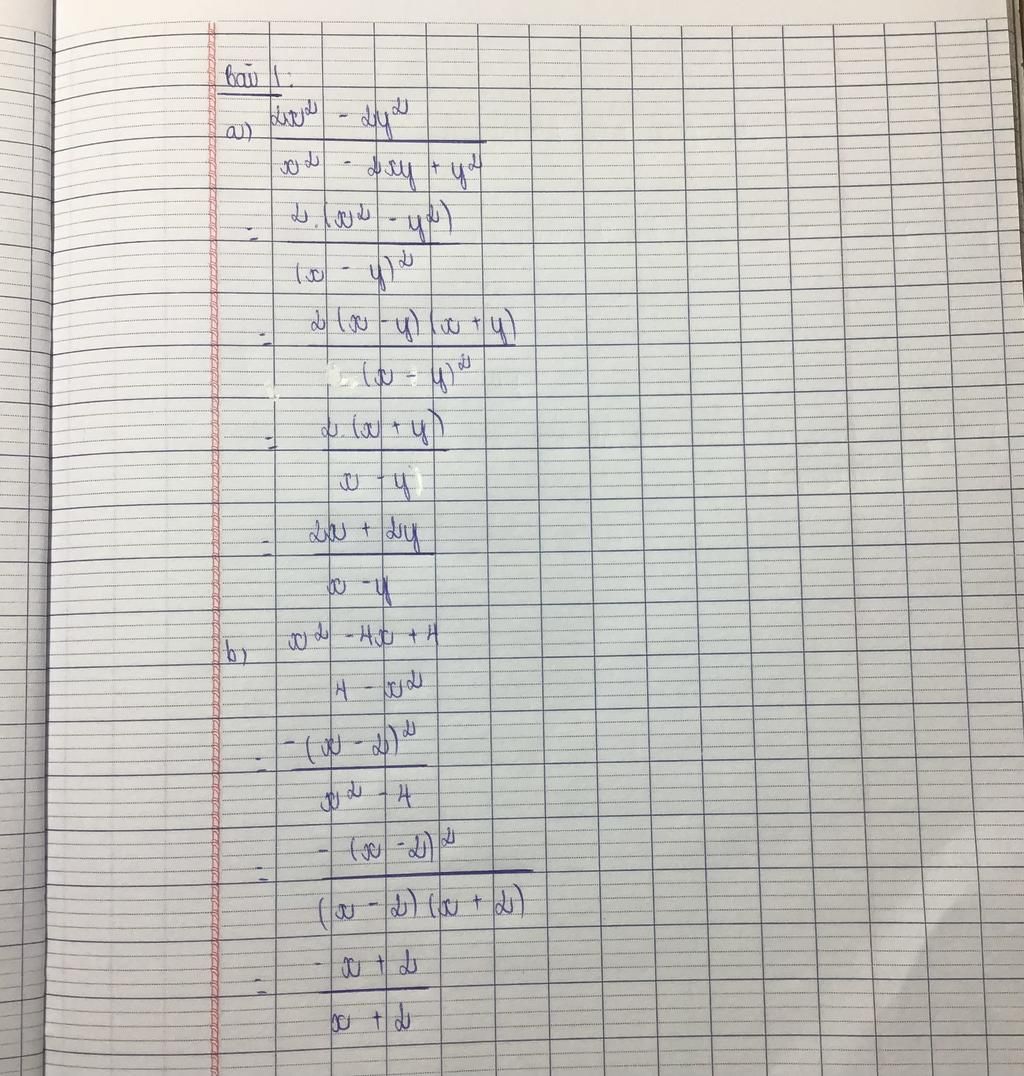 Bài 1:
a) 2x² - 2y²
x² - 2xy + y²
= 2.(x² - y²)
(x - y)²
= 2(x - y)(x + y)
(x - y)²
= 2.(x + y)
x - y
= 2x + 2y
x - y
b) x² - 4x + 4
4 - x²
= -(x - 2)²
x² - 4
= -(x - 2)²
(x - 2)(x + 2)
= -x + 2
x + 2